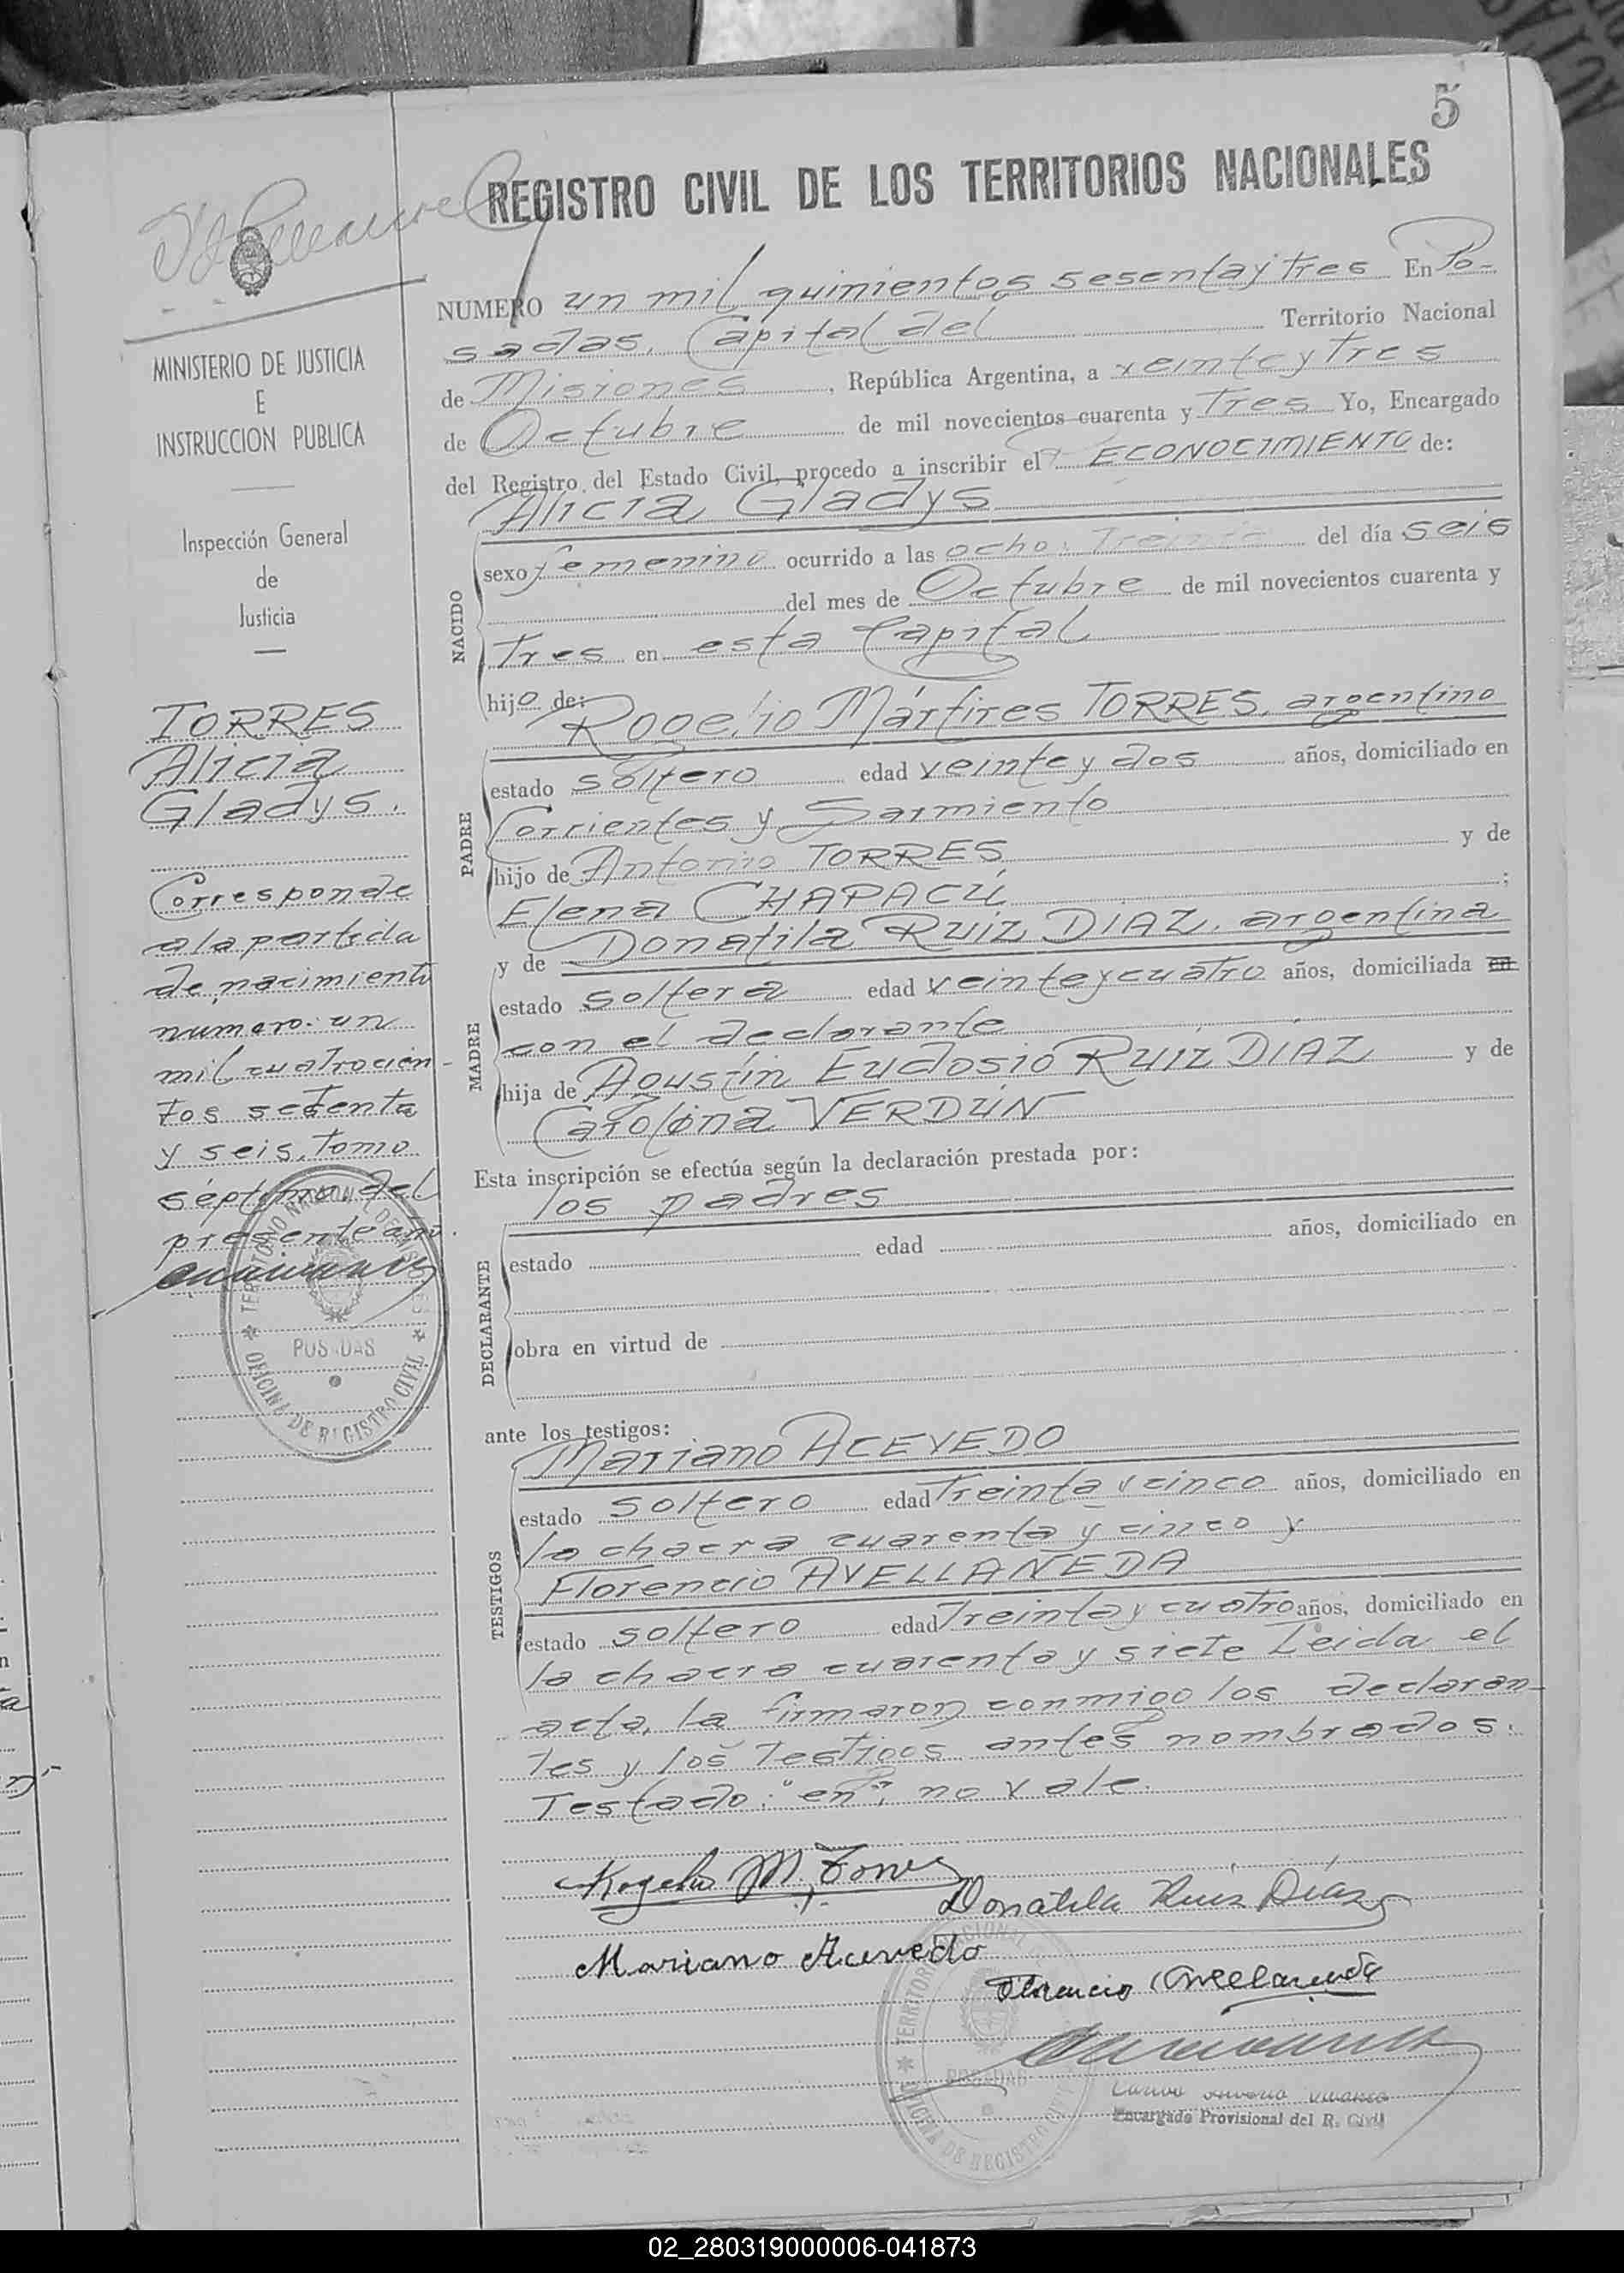 5
REGISTRO CIVIL DE LOS TERRITORIOS NACIONALES
NUMERO un mil quinientos sesentaytres En Po-
sadas, Capital del Territorio Nacional
de Misiones, República Argentina, a veinteytres
de Octubre de mil novecientos cuarenta y Tres Yo, Encargado
del Registro del Estado Civil, procedo a inscribir el RECONOCIMIENTO de:
Alicia Gladys
NACIDO
sexo femenino ocurrido a las ocho y Treinta del día seis
del mes de Octubre de mil novecientos cuarenta y
Tres en esta Capital
hijo de:
Rogelio Mártires TORRES, argentino
PADRE
estado soltero edad veinte y dos años, domiciliado en
Corrientes y Sarmiento
hijo de Antonio TORRES y de
Elena CHAPACÚ ;
y de Donatila RUIZ DIAZ, argentina
MADRE
estado soltera edad veinteycuatro años, domiciliada en
con el declarante
hija de Agustín Eudosio RUIZ DÍAZ y de
Carolina VERDÚN
Esta inscripción se efectúa según la declaración prestada por:
los padres
DECLARANTE
estado edad años, domiciliado en
obra en virtud de
ante los testigos:
Mariano ACEVEDO
TESTIGOS
estado soltero edad Treinta y cinco años, domiciliado en
la chacra cuarenta y cinco y
Florencio AVELLANEDA
estado soltero edad Treinta y cuatro años, domiciliado en
la chacra cuarenta y siete Leida el
acta, la firmaron conmigo los declaran-
tes y los Testigos antes nombrados.
Testado: "en", no vale.
Rogelio M. Torres
Donatila Ruiz Diaz
Mariano Acevedo
Florencio Avellaneda
Encargado Provisional del R. Civil
MINISTERIO DE JUSTICIA
E
INSTRUCCION PUBLICA
Inspección General
de
Justicia
TORRES
Alicia
Gladys.
Corresponde
a la partida
de nacimiento
numero: un
mil cuatrocien-
tos setenta
y seis, tomo
séptimo, del
presente año.
TERRITORIO NACIONAL DE MISIONES
POSADAS
OFICINA DE REGISTRO CIVIL
TERRITORIO NACIONAL
POSADAS
OFICINA DE REGISTRO CIVIL
02_280319000006-041873